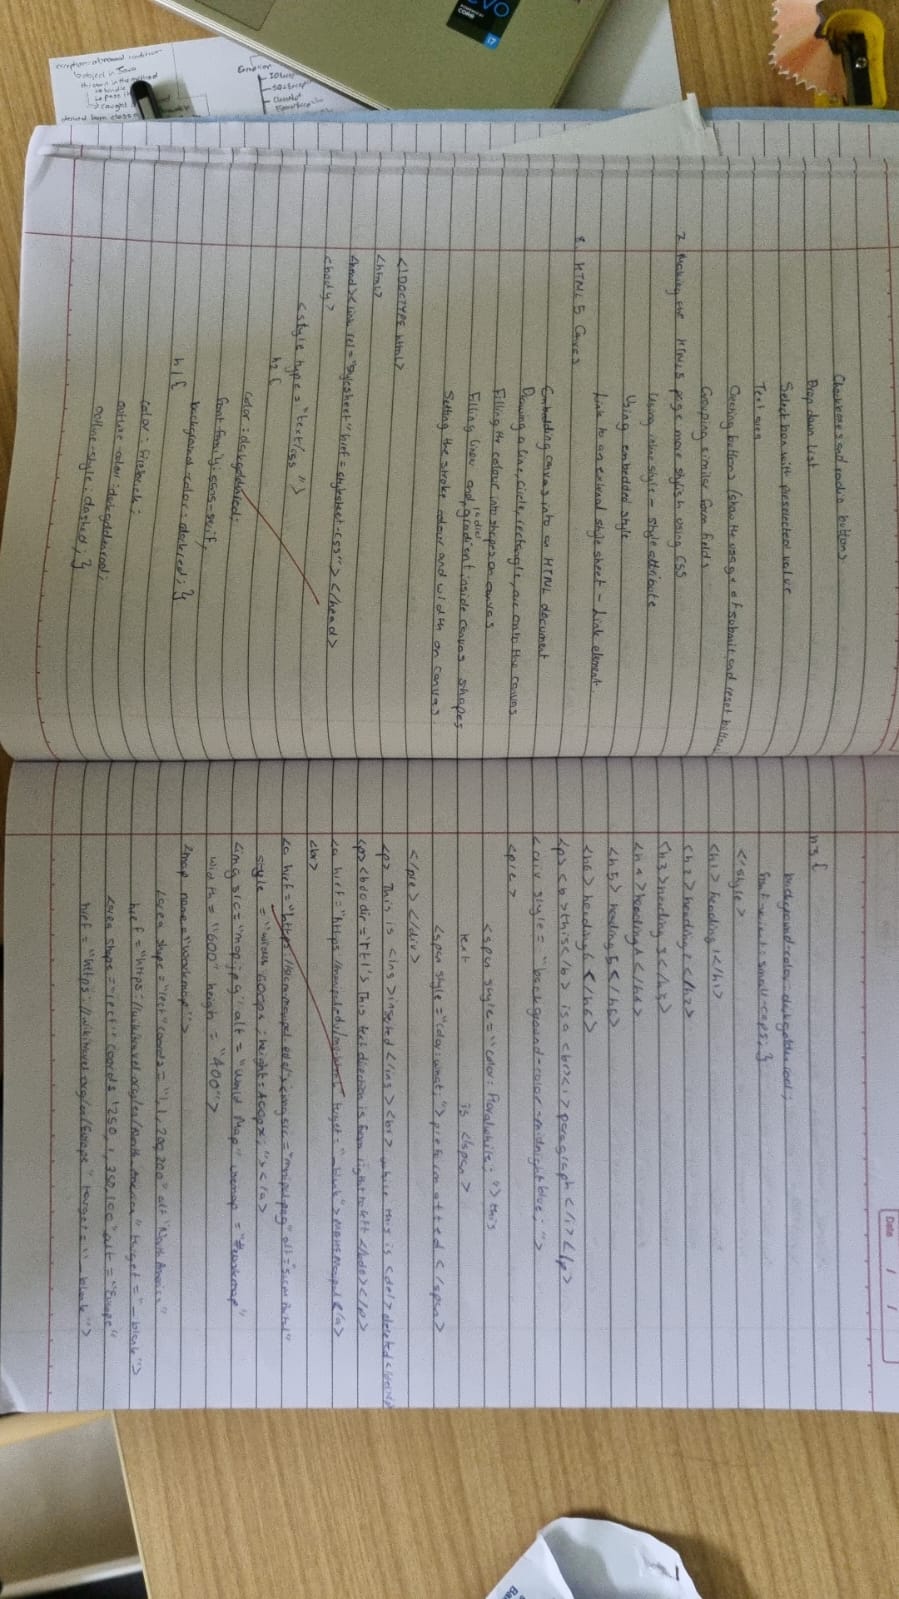 Checkboxes and radio buttons
Drop down list
Select box with preselected value
Text area
Creating buttons (show the usage of submit and reset button
Grouping similar form fields
7. Making the HTML5 page more stylish using CSS
Using inline style - style attribute
Using embedded style
Link to an external style sheet - Link element
8. HTML 5 Canvas
Embedding canvas into an HTML document
Drawing a line, circle, rectangle, arc onto the canvas
Filling the colour into shapes on canvas
Filling linear and radial gradient inside canvas shapes
Setting the stroke colour and width on canvas
<!DOCTYPE html>
<html>
<head><link rel="stylesheet" href=stylesheet.css"></head>
<body>
<style type="text/css">
h2{
color: darkgoldenred;
font-family: sans-serif;
background-color: darkred; }
h1{
color: firebrick;
outline-color: darkgoldenrod;
outline-style: dashed; }
h3{
background-color: darkgoldenrod;
font-variant: small-caps; }
</style>
<h1>heading 1</h1>
<h2>heading 2</h2>
<h3>heading 3</h3>
<h4>heading 4</h4>
<h5>heading 5</h5>
<h6>heading 6</h6>
<p><b>this</b> is a <br><i>paragraph</i></p>
<div style="background-color:midnightblue;">
<pre>
<span style="color: Floralwhite;">this
text is </span>
<span style="color:wheat;">preformatted</span>
</pre></div>
<p> This is <ins>inserted</ins><br> while this is <del>deleted
<p><bdo dir="rtl"> This text direction is from right to left </bdo></p>
target="_blank">
<br>
style="width:600px; height:400px;"></a>
<img src="map.jpg" alt="World Map" usemap="#workmap"
width="600" height="400">
<map name="workmap">
<area shape="rect" coords="1,1,200,200" alt "North America"
href="https://wikitravel.org/en/North America" target="_blank">
<area shape="rect" coords "250,1,350,100" alt="Europe"
href="https://wikitravel.org/en/Europe" target="_blank">
Date / /
exception: abnormal condition
object in Java
thrown in the method
CORE i7